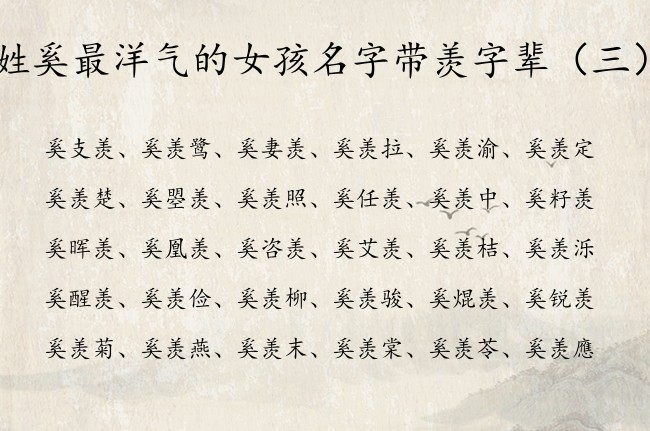 姓奚最洋气的女孩名字带羡字辈（三）
奚支羡、奚羡鹭、奚妻羡、奚羡拉、奚羡渝、奚羡定
奚羡楚、奚曌羡、奚羡照、奚任羡、奚羡中、奚籽羡
奚晖羡、奚凰羡、奚咨羡、奚艾羡、奚羡桔、奚羡泺
奚醒羡、奚羡俭、奚羡柳、奚羡骏、奚焜羡、奚锐羡
奚羡菊、奚羡燕、奚羡末、奚羡棠、奚羡苓、奚羡應